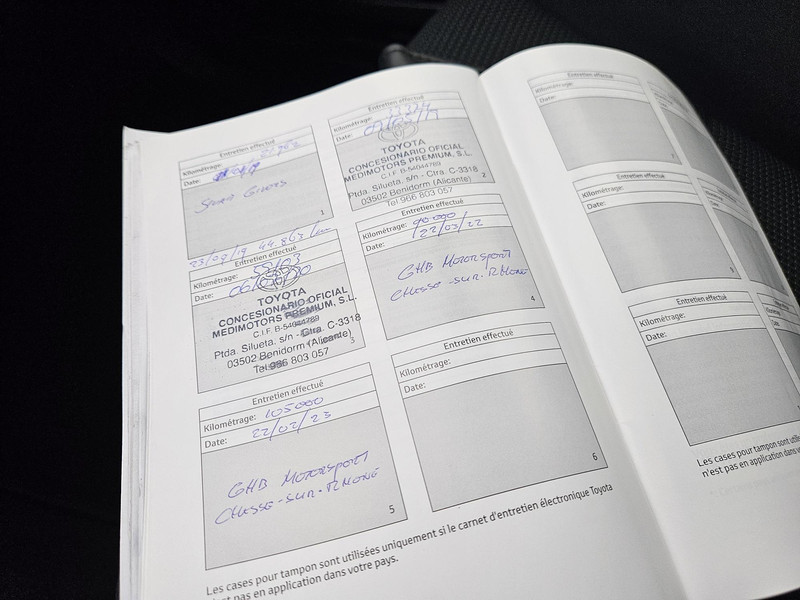 Entretien effectué
Kilométrage:
Date:
1
23/09/19 44.863 km
Entretien effectué
Kilométrage:
Date:
TOYOTA
CONCESIONARIO OFICIAL
MEDIMOTORS PREMIUM, S.L.
C.I.F. B-54044789
Ptda. Silueta, s/n - Ctra. C-3318
03502 Benidorm (Alicante)
Tel 966 803 057
2
Entretien effectué
Kilométrage:
Date:
TOYOTA
CONCESIONARIO OFICIAL
MEDIMOTORS PREMIUM, S.L.
C.I.F. B-54044789
Ptda. Silueta, s/n - Ctra. C-3318
03502 Benidorm (Alicante)
Tel. 966 803 057
3
Entretien effectué
Kilométrage: 90.000
Date: 22/03/22
GHB MOTORSPORT
CHASSE-SUR-RHONE
4
Entretien effectué
Kilométrage: 105000
Date: 22/02/23
GHB MOTORSPORT
CHASSE-SUR-RHONE
5
Entretien effectué
Kilométrage:
Date:
6
Les cases pour tampon sont utilisées uniquement si le carnet d'entretien électronique Toyota
n'est pas en application dans votre pays.
Entretien effectué
Kilométrage:
Date:
Entretien effectué
Kilométrage:
Date:
Entretien effectué
Kilométrage:
Date:
Les cases pour tampon sont
n'est pas en application dans